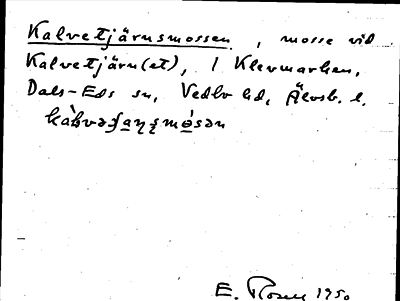 Kalvetjärnsmossen, mosse vid
Kalvetjärn(et), i Klevmarken,
Dals-Eds sn, Vedbo hd, Älvsb. l.
E. Rosell 1950